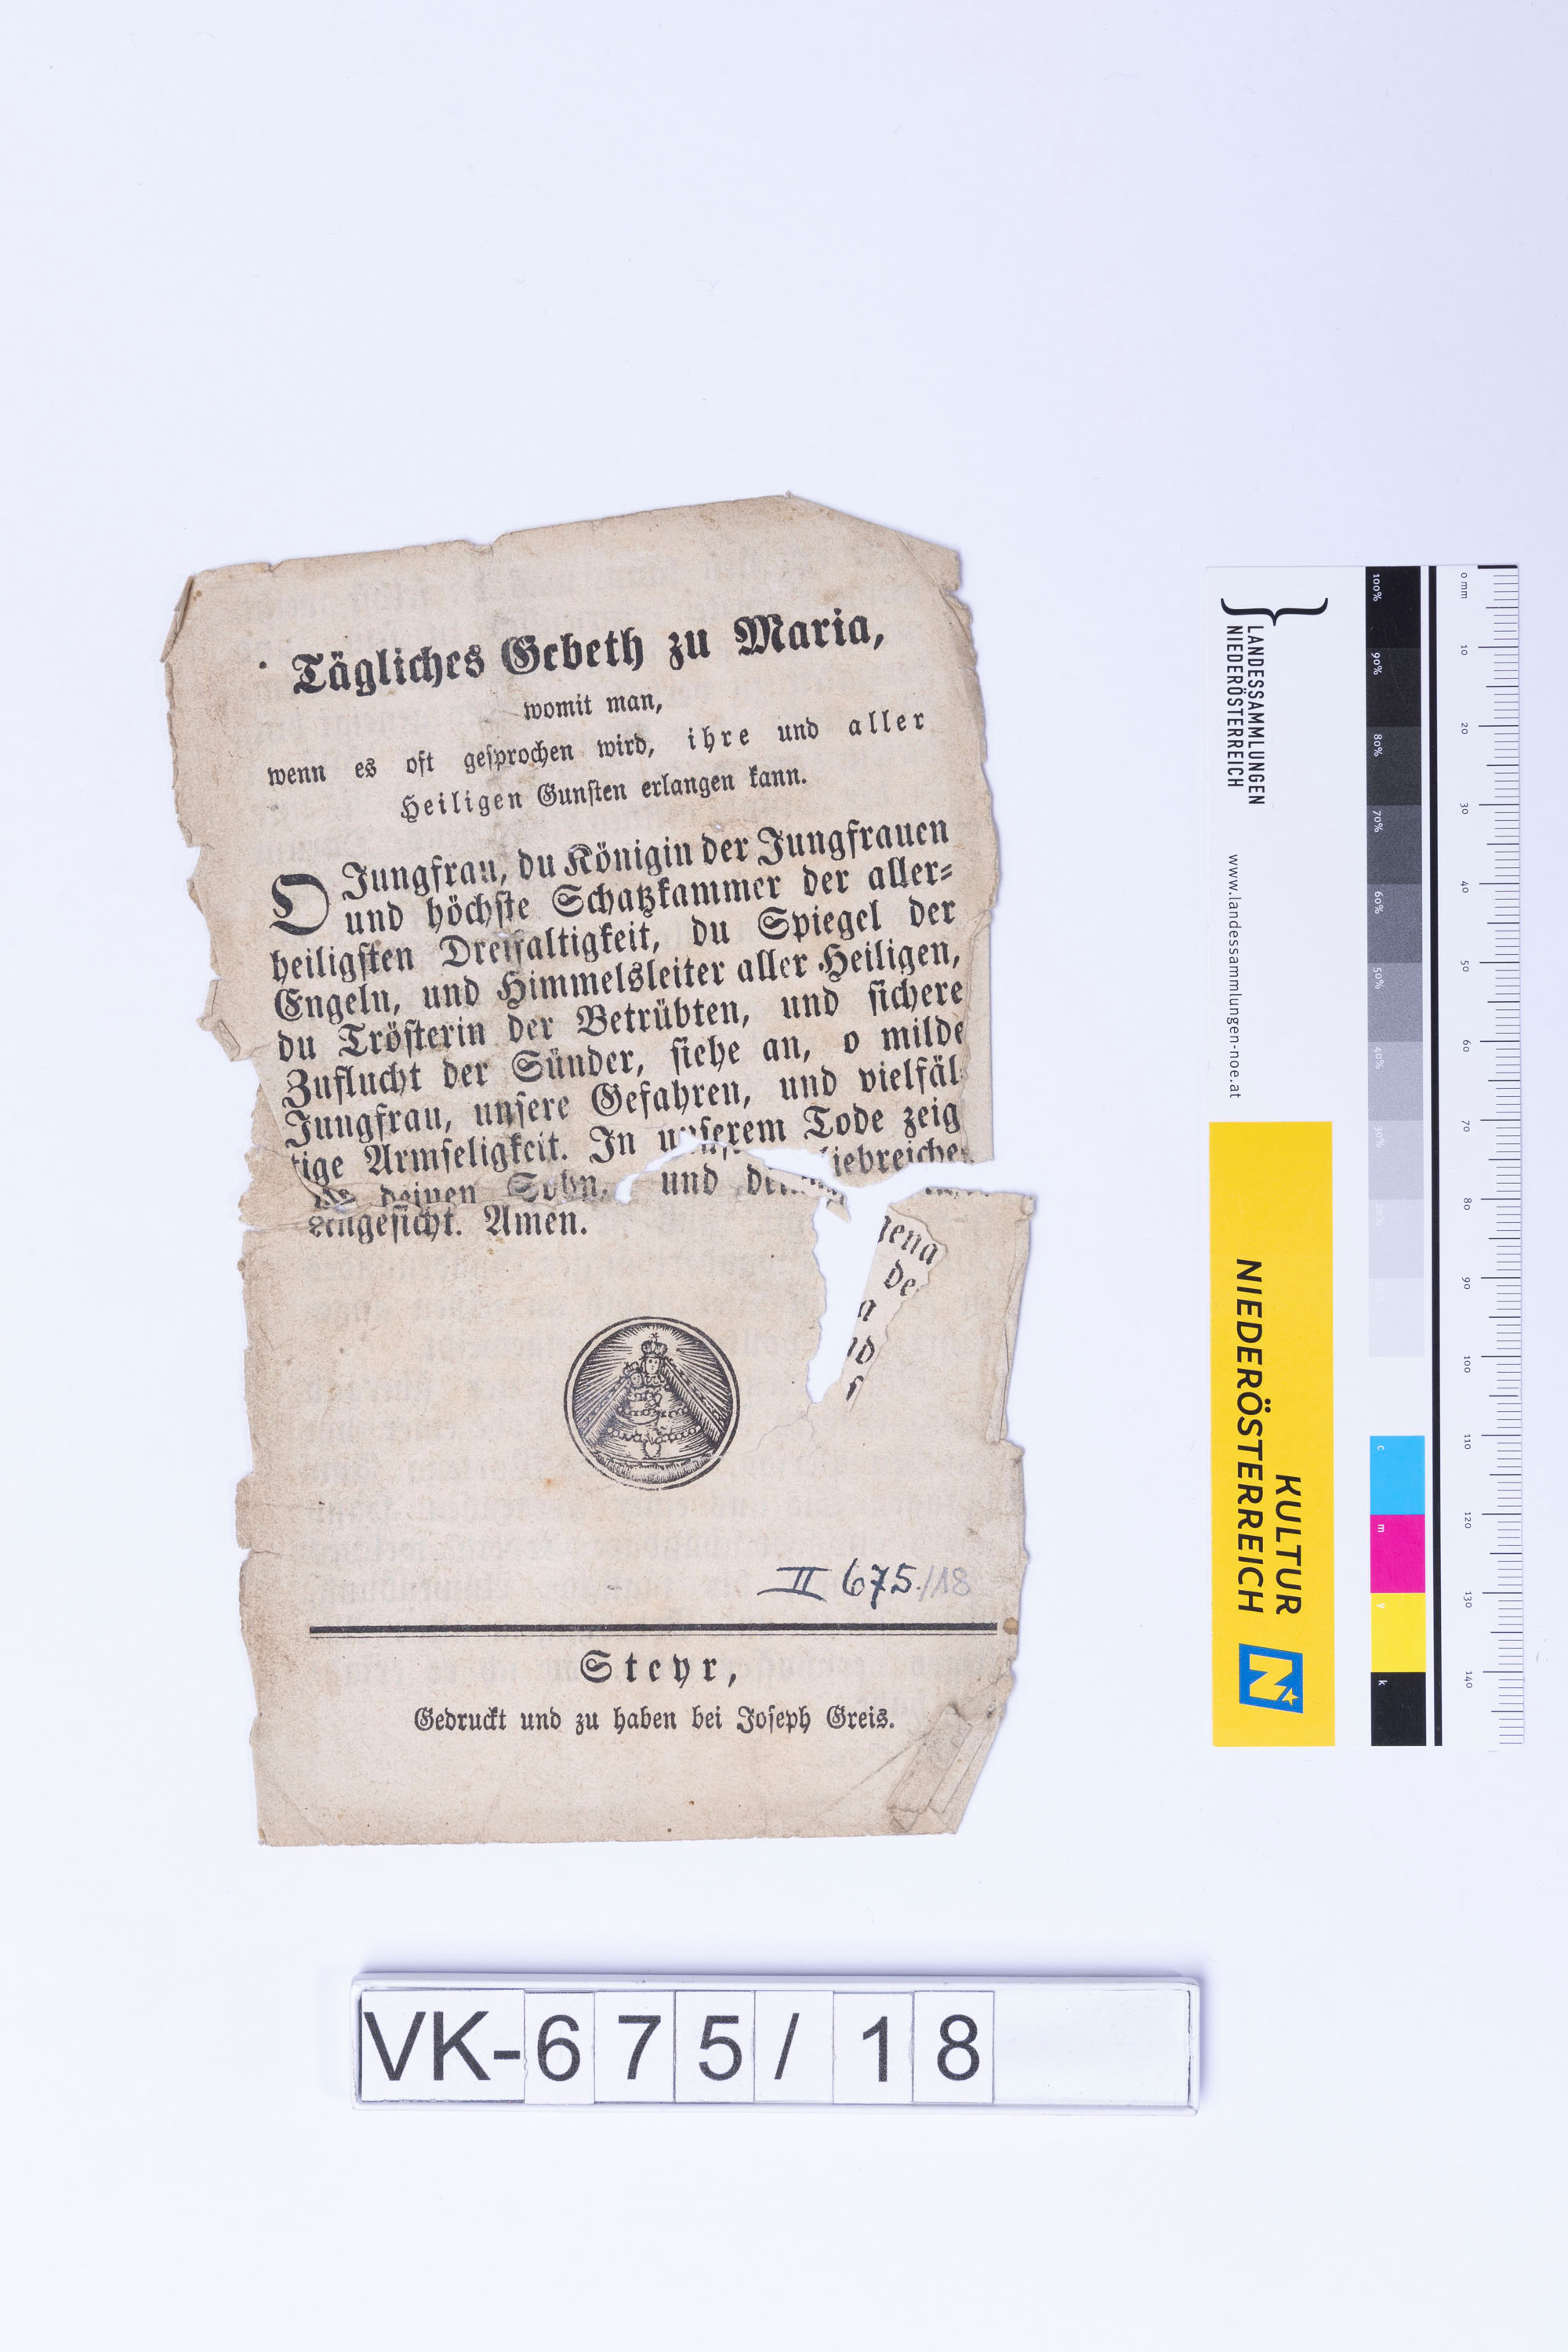 Tägliches Gebeth zu Maria,
womit man,
wenn es oft gesprochen wird, ihre und aller
Heiligen Gunsten erlangen kann.
O Jungfrau, du Königin der Jungfrauen
und höchste Schatzkammer der aller=
heiligsten Dreifaltigkeit, du Spiegel der
Engeln, und Himmelsleiter aller Heiligen,
du Trösterin der Betrübten, und sichere
Zuflucht der Sünder, siehe an, o milde
Jungfrau, unsere Gefahren, und vielfäl
tige Armseligkeit. In unserem Tode zeig
deinen Sohn, und liebreiche
Angesicht. Amen.
II 675./18
Steyr,
Gedruckt und zu haben bei Joseph Greis.
VK-675/18
LANDESSAMMLUNGEN
NIEDERÖSTERREICH
www.landessammlungen-noe.at
KULTUR
NIEDERÖSTERREICH
100%
90%
80%
70%
60%
50%
40%
30%
20%
c
m
y
k
0 mm
10
20
30
40
50
60
70
80
90
100
110
120
130
140